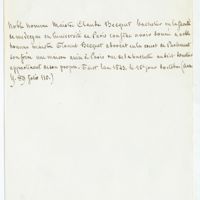 Noble homme Maistre Claude Becquet bachelier en la faculté
de médecine en l'université de Paris confesse avoir donné à noble
homme maistre Florent Becquet advocat en la court de Parlement
son frère une maison size à Paris rue de la
appartenant de son propre. Faict l'an 1542 le 15e jour d'octobre